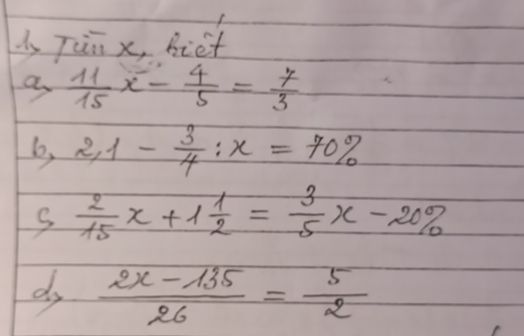 1, Tìm x, biết
a, 11/15 x - 4/5 = 7/3
b, 2,1 - 3/4 : x = 70%
c, 2/15 x + 1 1/2 = 3/5 x - 20%
d, (2x - 135)/26 = 5/2